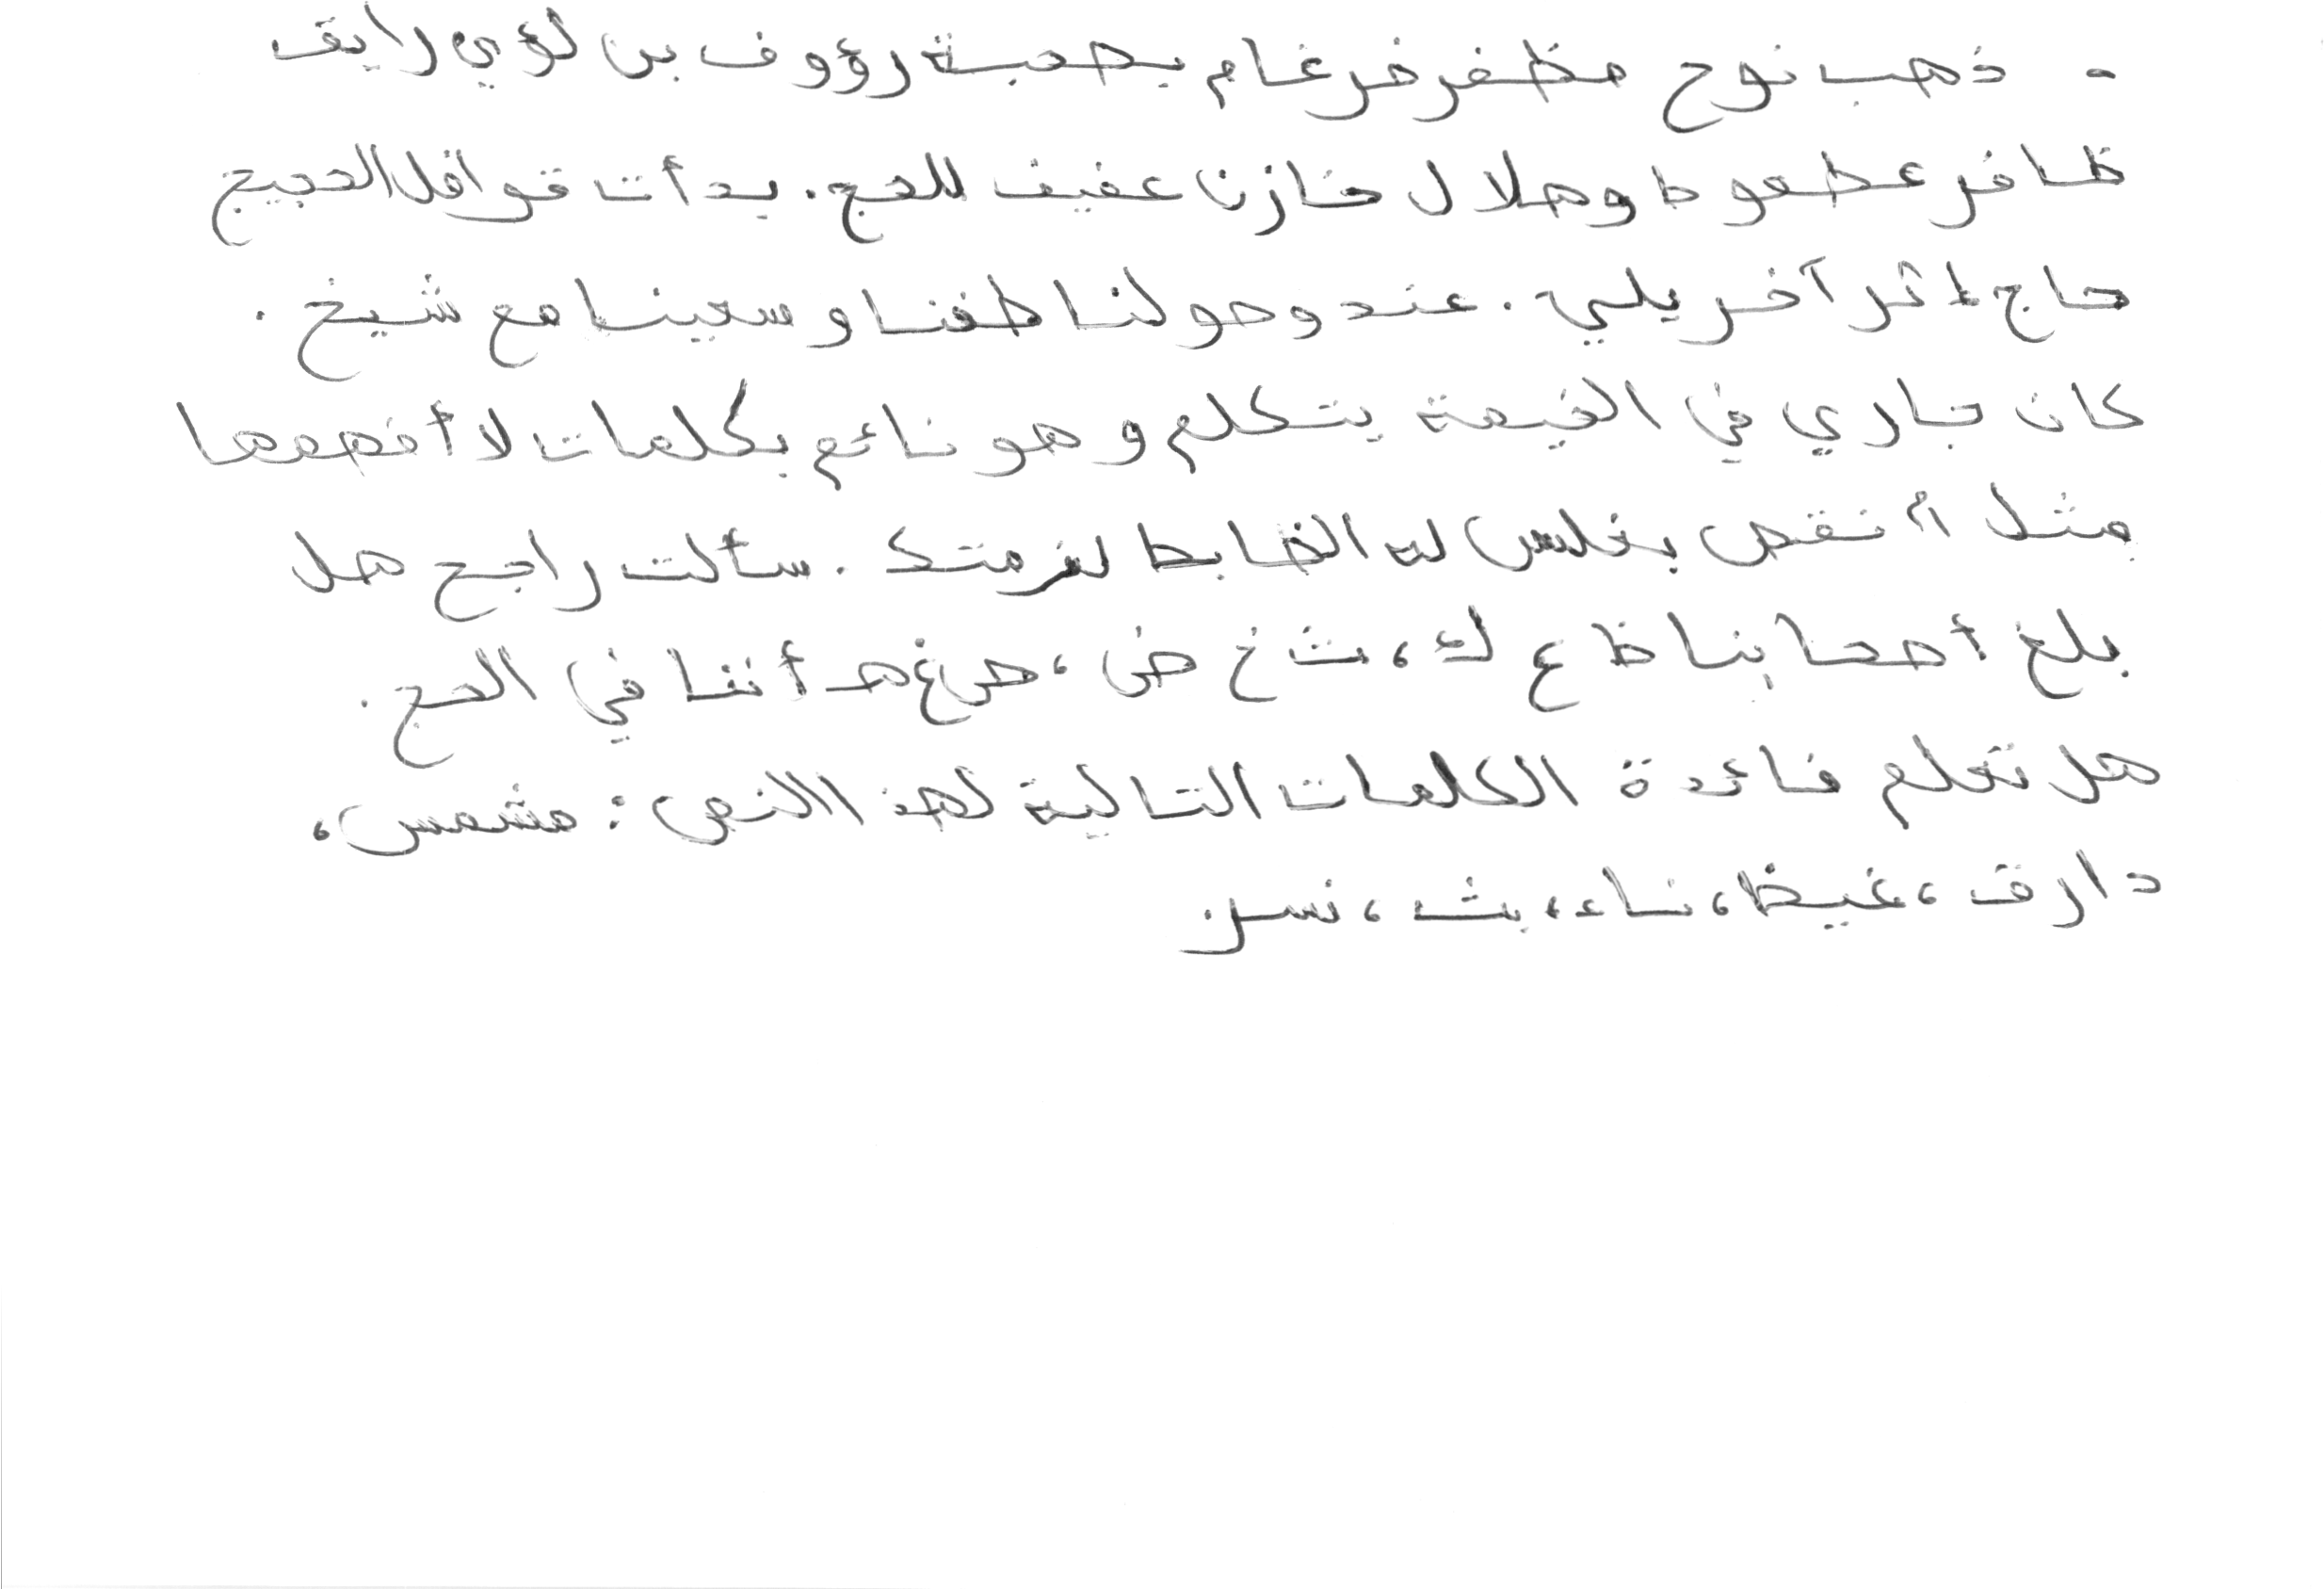 - ذهب نوح مظفر ضرغام بصحبة رؤوف بن لؤي رايق
ظافر عطعوط وهلال خازن عفيف للحج. بدأت قوافل الحجيج
حاج إثر آخر يلي. عند وصولنا طفنا وسعينا مع شيخ.
كان جاري في الخيمة يتكلم وهو نائم بكلمات لا أفهمها
مثل أ نقص بخلس له الضابط لغزمتك. سألت راجح هل
بلغ أصحابنا ظ ع ك، ث خ ض، ص غ هـ أننا في الحج.
هل تعلم فائدة الكلمات التالية لهذا النص: مشمس،
دارق، غيظ، ناء، بث، نسر.